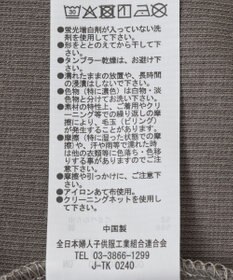 ●蛍光増白剤が入っていない洗
剤を使用して下さい。
●形をととのえてから干して下
さい。
●タンブラー乾燥は、お避け下
さい。
●濡れたままの放置や、長時間
の浸漬はしないで下さい。
●色物（特に濃色）は白物・淡
色物と分けてお洗い下さい。
●素材の特性上、ご着用やクリ
ーニング等での繰り返しの摩
擦により、毛玉（ピリング）
が発生することがあります。
●摩擦（特に湿った状態での摩
擦）や、汗や雨等で濡れた時
は他の衣類等に色落ち・色移
りする事がありますのでご注
意下さい。
●摩擦や引っかけに、ご注意下
さい。
●アイロンあて布使用。
●クリーニングネットを使用し
て下さい。
中国製
全日本婦人子供服工業組合連合会
TEL 03-3866-1299
J-TK 0240